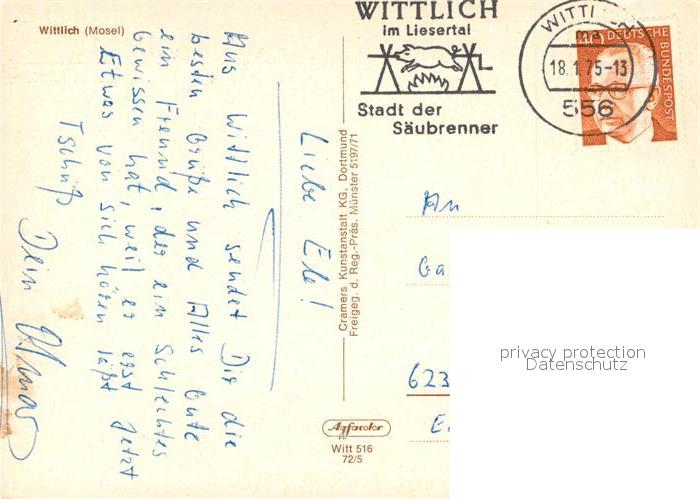 Wittlich (Mosel)
Liebe Ele!
Aus Wittlich sendet Dir die
besten Grüße und Alles Gute
ein Freund, der ein Schlechtes
Gewissen hat, weil er erst Jetzt
Etwas von sich hören läßt
Tschüß
Dein
WITTLICH
im Liesertal
Stadt der
Säubrenner
WITTLICH
18.1.75-13
556
40 DEUTSCHE
BUNDESPOST
Cramers Kunstanstalt KG, Dortmund
Freigeg. d. Reg.-Präs. Münster 5197/71
An
Ga
623
E
privacy protection
Datenschutz
Agfacolor
Witt 516
72/5